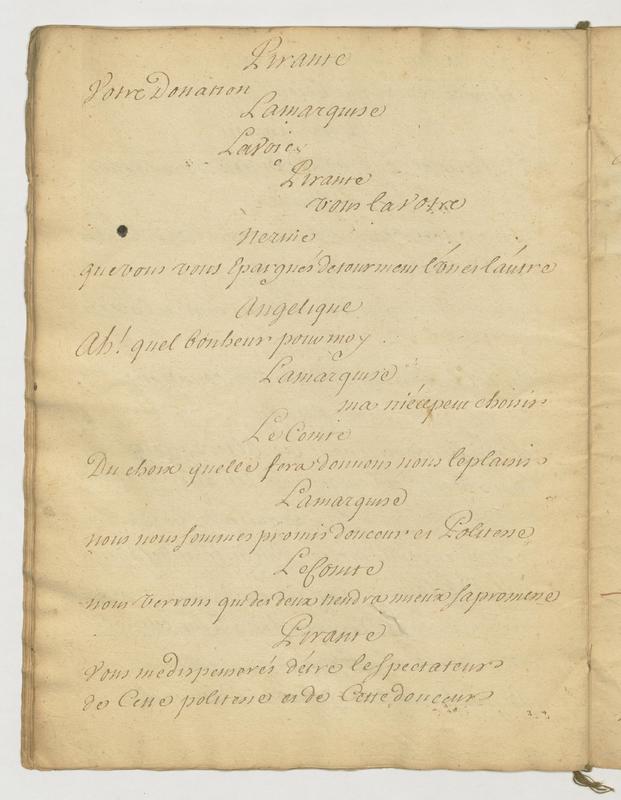 Pirante
Votre Donation
Lamarquise
La Voicy
Pirante
Vous la Votre
Nerine
que vous vous Epargnés de tourment l'un et l'autre
Angelique
Ah! quel bonheur pour moy.
Lamarquise
ma niéce peut choisir
Le Comte
Du choix quelle fera donnons nous le plaisir
Lamarquise
nous nous sommes promis douceur et Politesse
Le Comte
nous Verrons qui des deux tiendra mieux sa promesse
Pirante
Vous me dispenserés d'être le spectateur
de Cette politesse et de Cette douceur